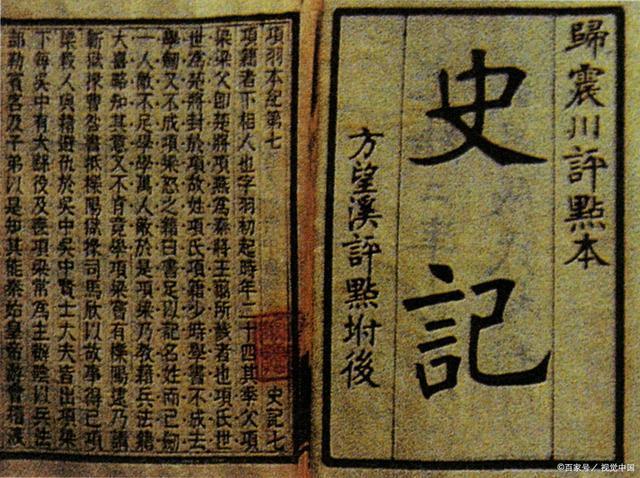 歸震川評點本
史記
方望溪評點坿後
項羽本紀第七 史記七
項籍者下相人也字羽初起時年二十四其季父項
梁梁父卽楚將項燕爲秦將王翦所戮者也項氏世
世爲楚將封於項故姓項氏項籍少時學書不成去
學劒又不成項梁怒之籍曰書足以記名姓而已劒
一人敵不足學學萬人敵於是項梁乃教籍兵法籍
大喜略知其意又不肯竟學項梁嘗有櫟陽逮乃請
蘄獄掾曹咎書抵櫟陽獄掾司馬欣以故事得已項
梁殺人與籍避仇於吳中吳中賢士大夫皆出項梁
下每吳中有大繇役及喪項梁常爲主辦陰以兵法
部勒賓客及子弟以是知其能秦始皇帝游會稽渡
©百家号／视觉中国